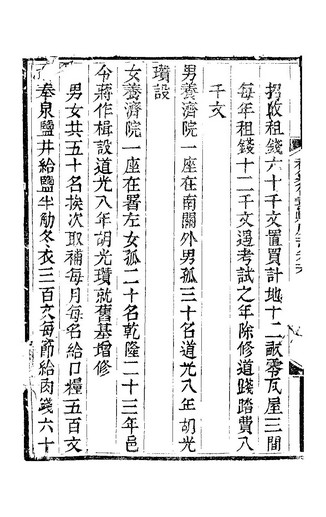 招收租錢六十千文置買計地十二畝零瓦屋三間
每年租錢十二千文遇考試之年除修道踐踏費八
千文
男養濟院一座在南關外男孤三十名道光八年胡光
瓚設
女養濟院一座在署左女孤二十名乾隆二十三年邑
令蔣作楫設道光八年胡光瓚就舊基增修
男女共五十名挨次取補每月每名給口糧五百文
奉泉鹽井給鹽半觔冬衣三百文每節給肉錢六十